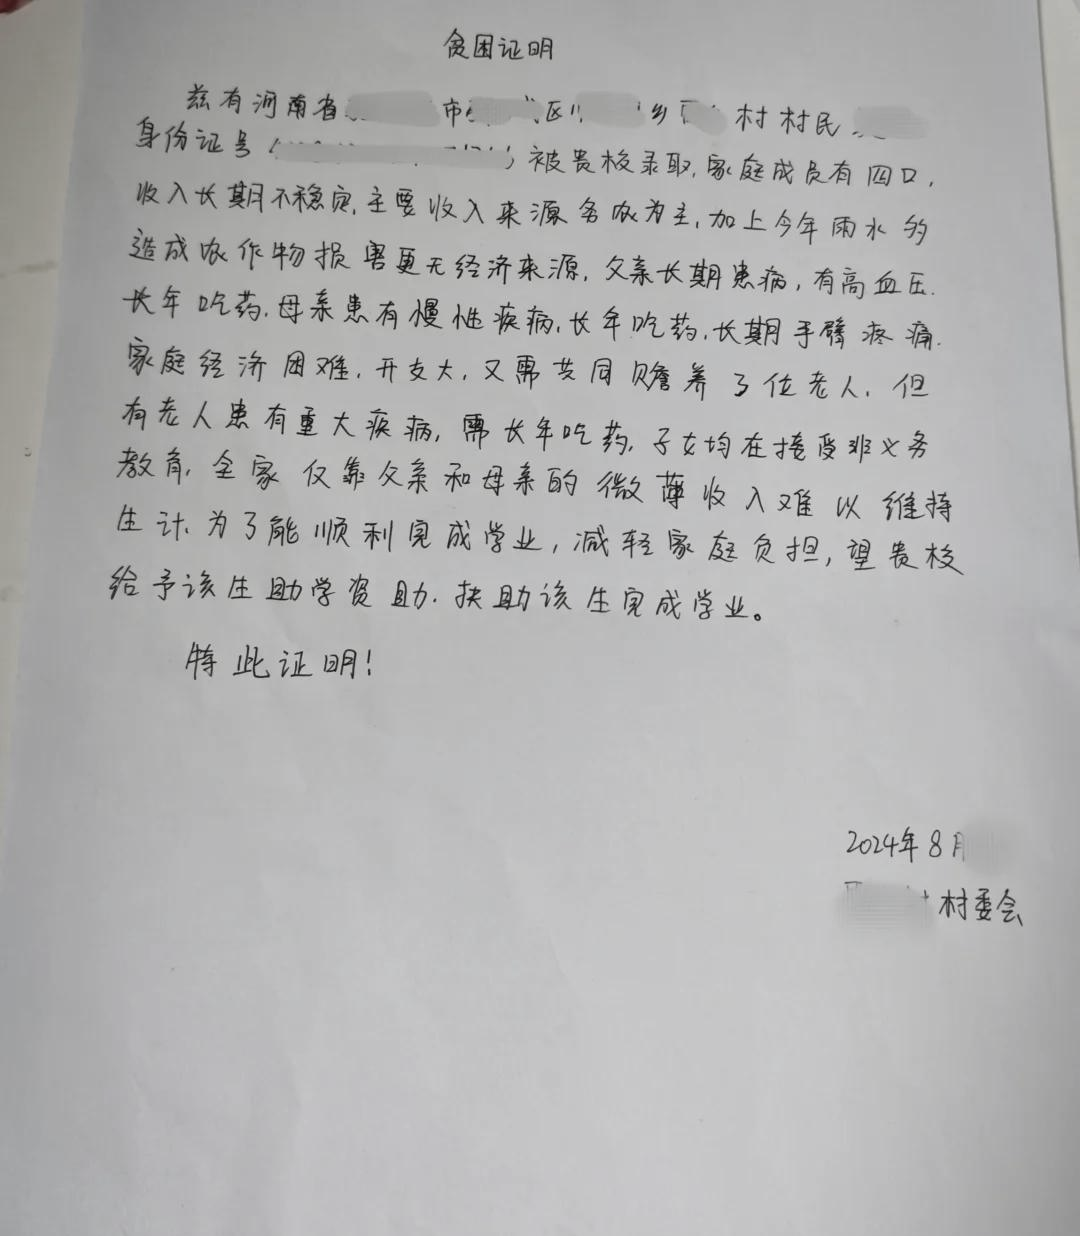 贫困证明
兹有河南省 市 区 乡 村村民
身份证号 被贵校录取,家庭成员有四口,
收入长期不稳定,主要收入来源务农为主,加上今年雨水多
造成农作物损害更无经济来源,父亲长期患病,有高血压.
长年吃药,母亲患有慢性疾病,长年吃药,长期手臂疼痛.
家庭经济困难,开支大,又需共同赡养了位老人,但
有老人患有重大疾病,需长年吃药,子女均在接受非义务
教育,全家仅靠父亲和母亲的微薄收入难以维持
生计.为了能顺利完成学业,减轻家庭负担,望贵校
给予该生助学资助.扶助该生完成学业。
特此证明!
2024年8月
村委会